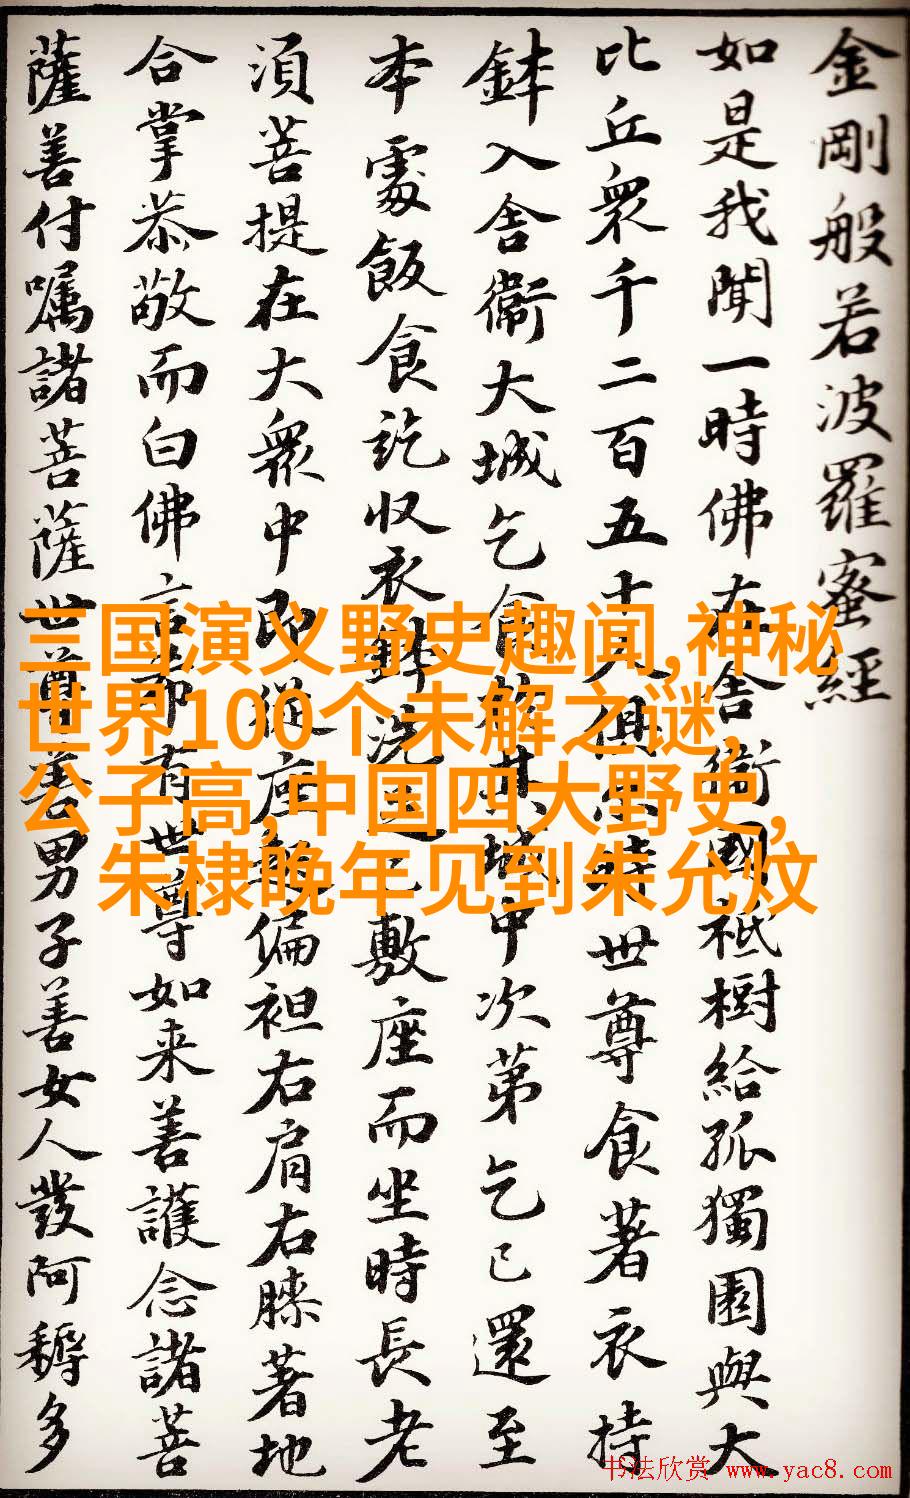 金剛般若波羅蜜經
如是我聞一時佛在舍衞國祇樹給孤獨園與大
比丘衆千二百五十人俱尒時世尊食著衣持
鉢入舍衞大城乞食於其城中次第乞已還至
本處飯食訖收衣鉢洗足已敷座而坐時長老
須菩提在大衆中即從座起偏袒右肩右膝著地
合掌恭敬而白佛言希有世尊如来善護念諸菩
薩善付嘱諸菩薩世尊善男子善女人發阿耨多
三国演义野史趣闻,神秘
世界100个未解之谜,
公子高,中国四大野史,
朱棣晚年见到朱允炆
书法欣赏 www.yac8.com